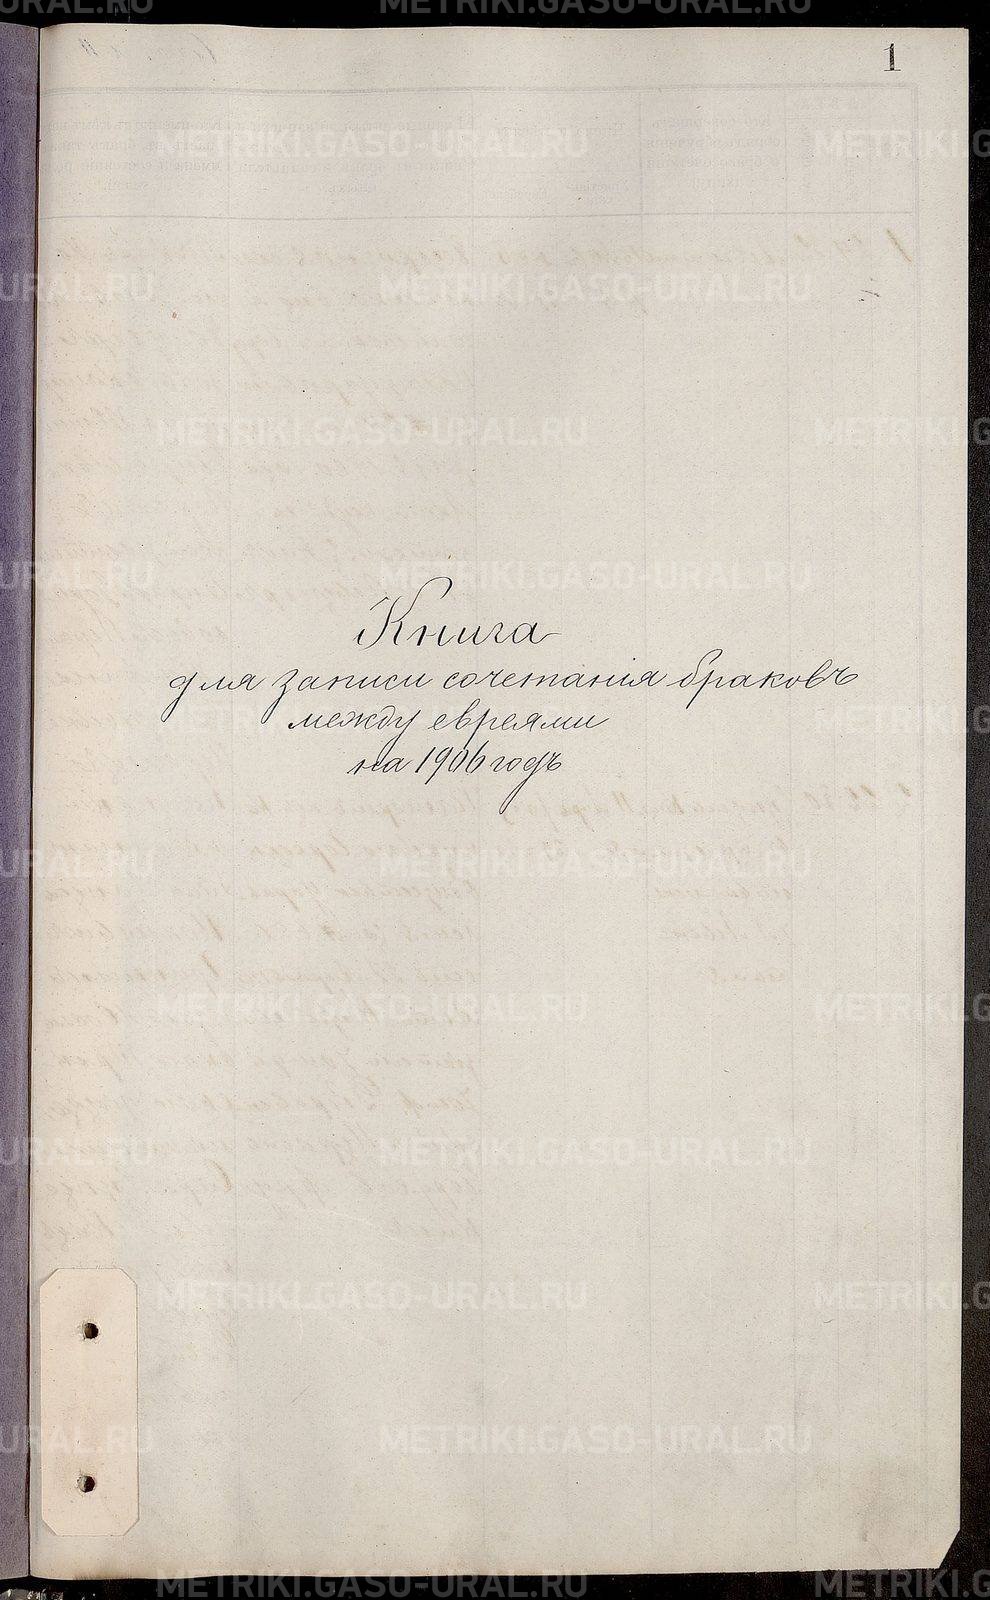 1
Книга
для записи сочетанія браковъ
между евреями
на 1906 годъ
METRIKI.GASO-URAL.RU